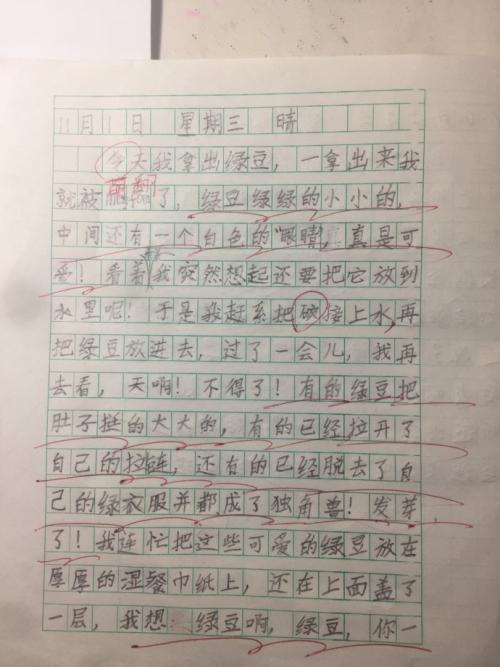 11月1日 星期三 晴
今天我拿出绿豆，一拿出来我
就被萌翻了，绿豆绿绿的小小的，
中间还有一个白色的“眼睛”，真是可
爱！看着我突然想起还要把它放到
水里呢！于是我赶系把碗接上水，再
把绿豆放进去，过了一会儿，我再
去看，天啊！不得了！有的绿豆把
肚子挺的大大的，有的已经拉开了
自己的拉链，还有的已经脱去了自
己的绿衣服并都成了独角兽！发芽
了！我连忙把这些可爱的绿豆放在
厚厚的湿餐巾纸上，还在上面盖了
一层，我想：绿豆啊，绿豆，你一